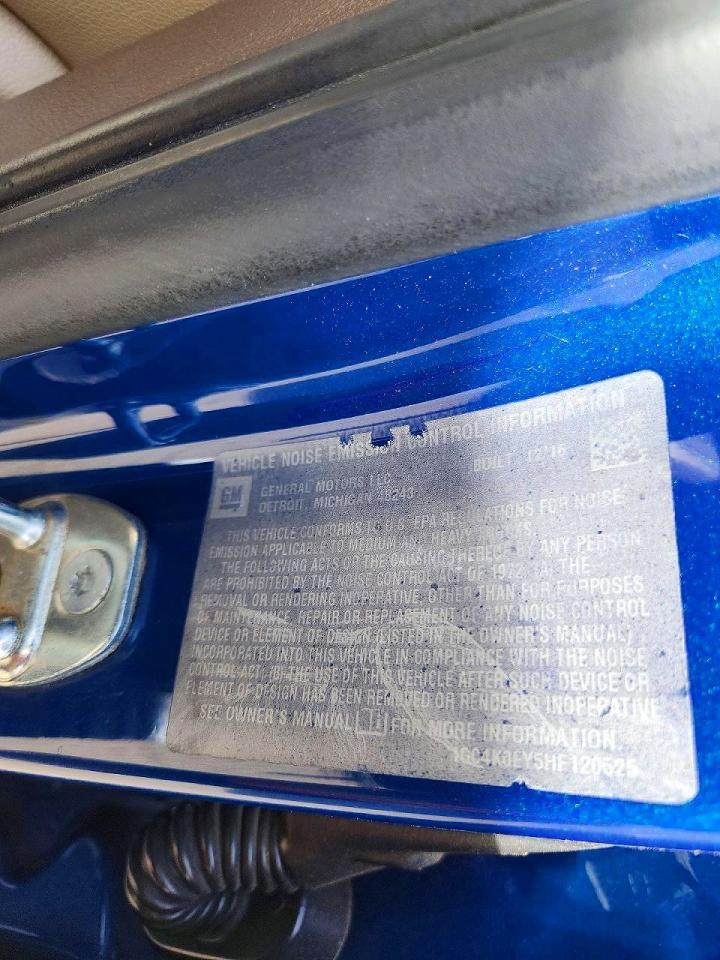 VEHICLE NOISE EMISSION CONTROL INFORMATION
GM GENERAL MOTORS LLC
DETROIT, MICHIGAN 48243
THIS VEHICLE CONFORMS TO U.S. EPA REGULATIONS FOR NOISE
EMISSION APPLICABLE TO MEDIUM AND HEAVY
THE FOLLOWING ACTS OR THE CAUSING THEREOF ANY PERSON
ARE PROHIBITED BY THE NOISE CONTROL ACT OF 1972. A. THE
REMOVAL OR RENDERING INOPERATIVE, OTHER THAN FOR PURPOSES
OF MAINTENANCE, REPAIR OR REPLACEMENT OF ANY NOISE CONTROL
DEVICE OR ELEMENT OF DESIGN (LISTED IN THE OWNER'S MANUAL)
INCORPORATED INTO THIS VEHICLE IN COMPLIANCE WITH THE NOISE
CONTROL ACT, (B) THE USE OF THIS VEHICLE AFTER SUCH DEVICE OR
ELEMENT OF DESIGN HAS BEEN REMOVED OR RENDERED INOPERATIVE
SEE OWNER'S MANUAL FOR MORE INFORMATION.